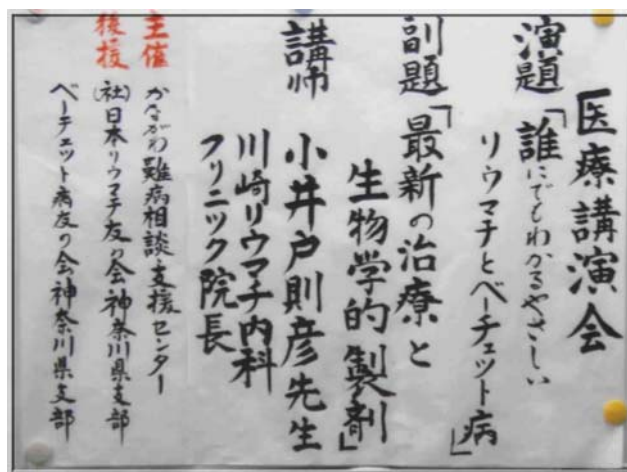 医療講演会
演題「誰にでもわかるやさしい
リウマチとベーチェット病」
副題「最新の治療と
生物学的製剤」
講師 小井戸則彦先生
川崎リウマチ内科
クリニック院長
主催 かながわ難病相談・支援センター
後援 (社)日本リウマチ友の会神奈川県支部
ベーチェット病友の会神奈川県支部